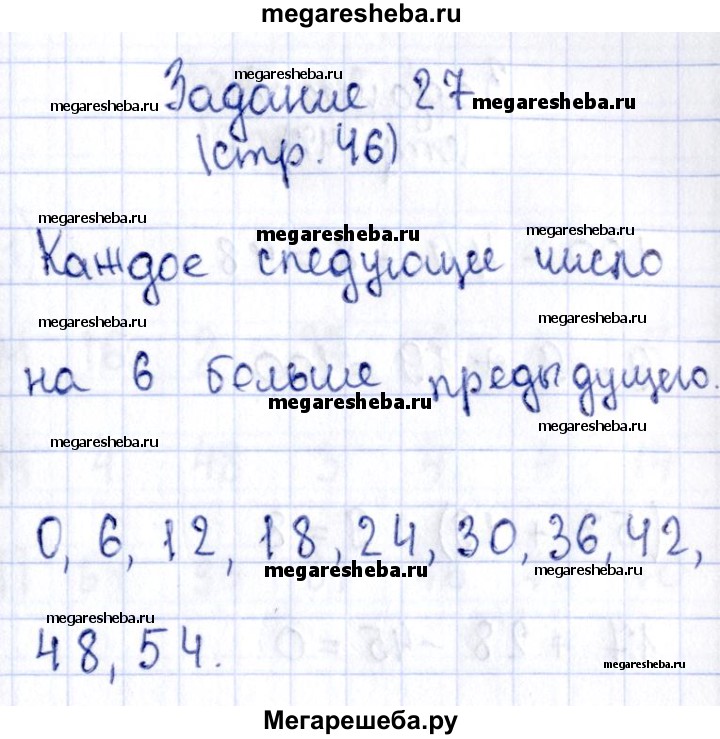 megaresheba.ru
megaresheba.ru
Задание 27
megaresheba.ru
megaresheba.ru
(стр. 46)
megaresheba.ru
megaresheba.ru
megaresheba.ru
Каждое следующее число
megaresheba.ru
megaresheba.ru
на 6 больше предыдущего.
megaresheba.ru
megaresheba.ru
megaresheba.ru
0, 6, 12, 18, 24, 30, 36, 42,
megaresheba.ru
megaresheba.ru
megaresheba.ru
48, 54.
megaresheba.ru
Мегарешеба.ру